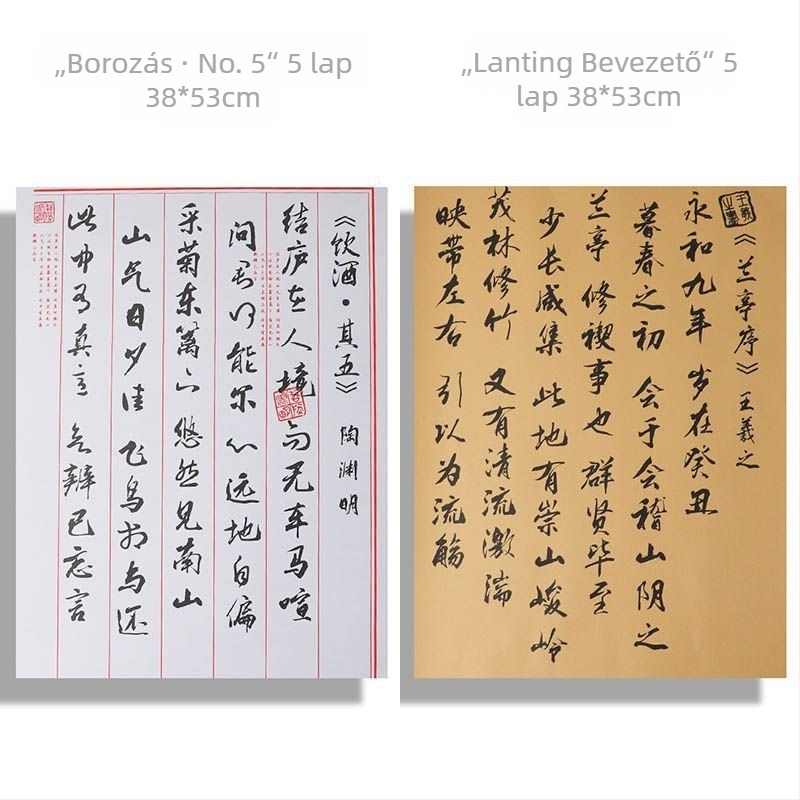 „Borozás · No. 5“ 5 lap
38*53cm
„Lanting Bevezető“ 5
lap 38*53cm
《饮酒·其五》 陶渊明
结庐在人境 而无车马喧
问君何能尔 心远地自偏
采菊东篱下 悠然见南山
山气日夕佳 飞鸟相与还
此中有真意 欲辨已忘言
《兰亭序》 王羲之
永和九年 岁在癸丑
暮春之初 会于会稽山阴之
兰亭 修禊事也 群贤毕至
少长咸集 此地有崇山峻岭
茂林修竹 又有清流激湍
映带左右 引以为流觞